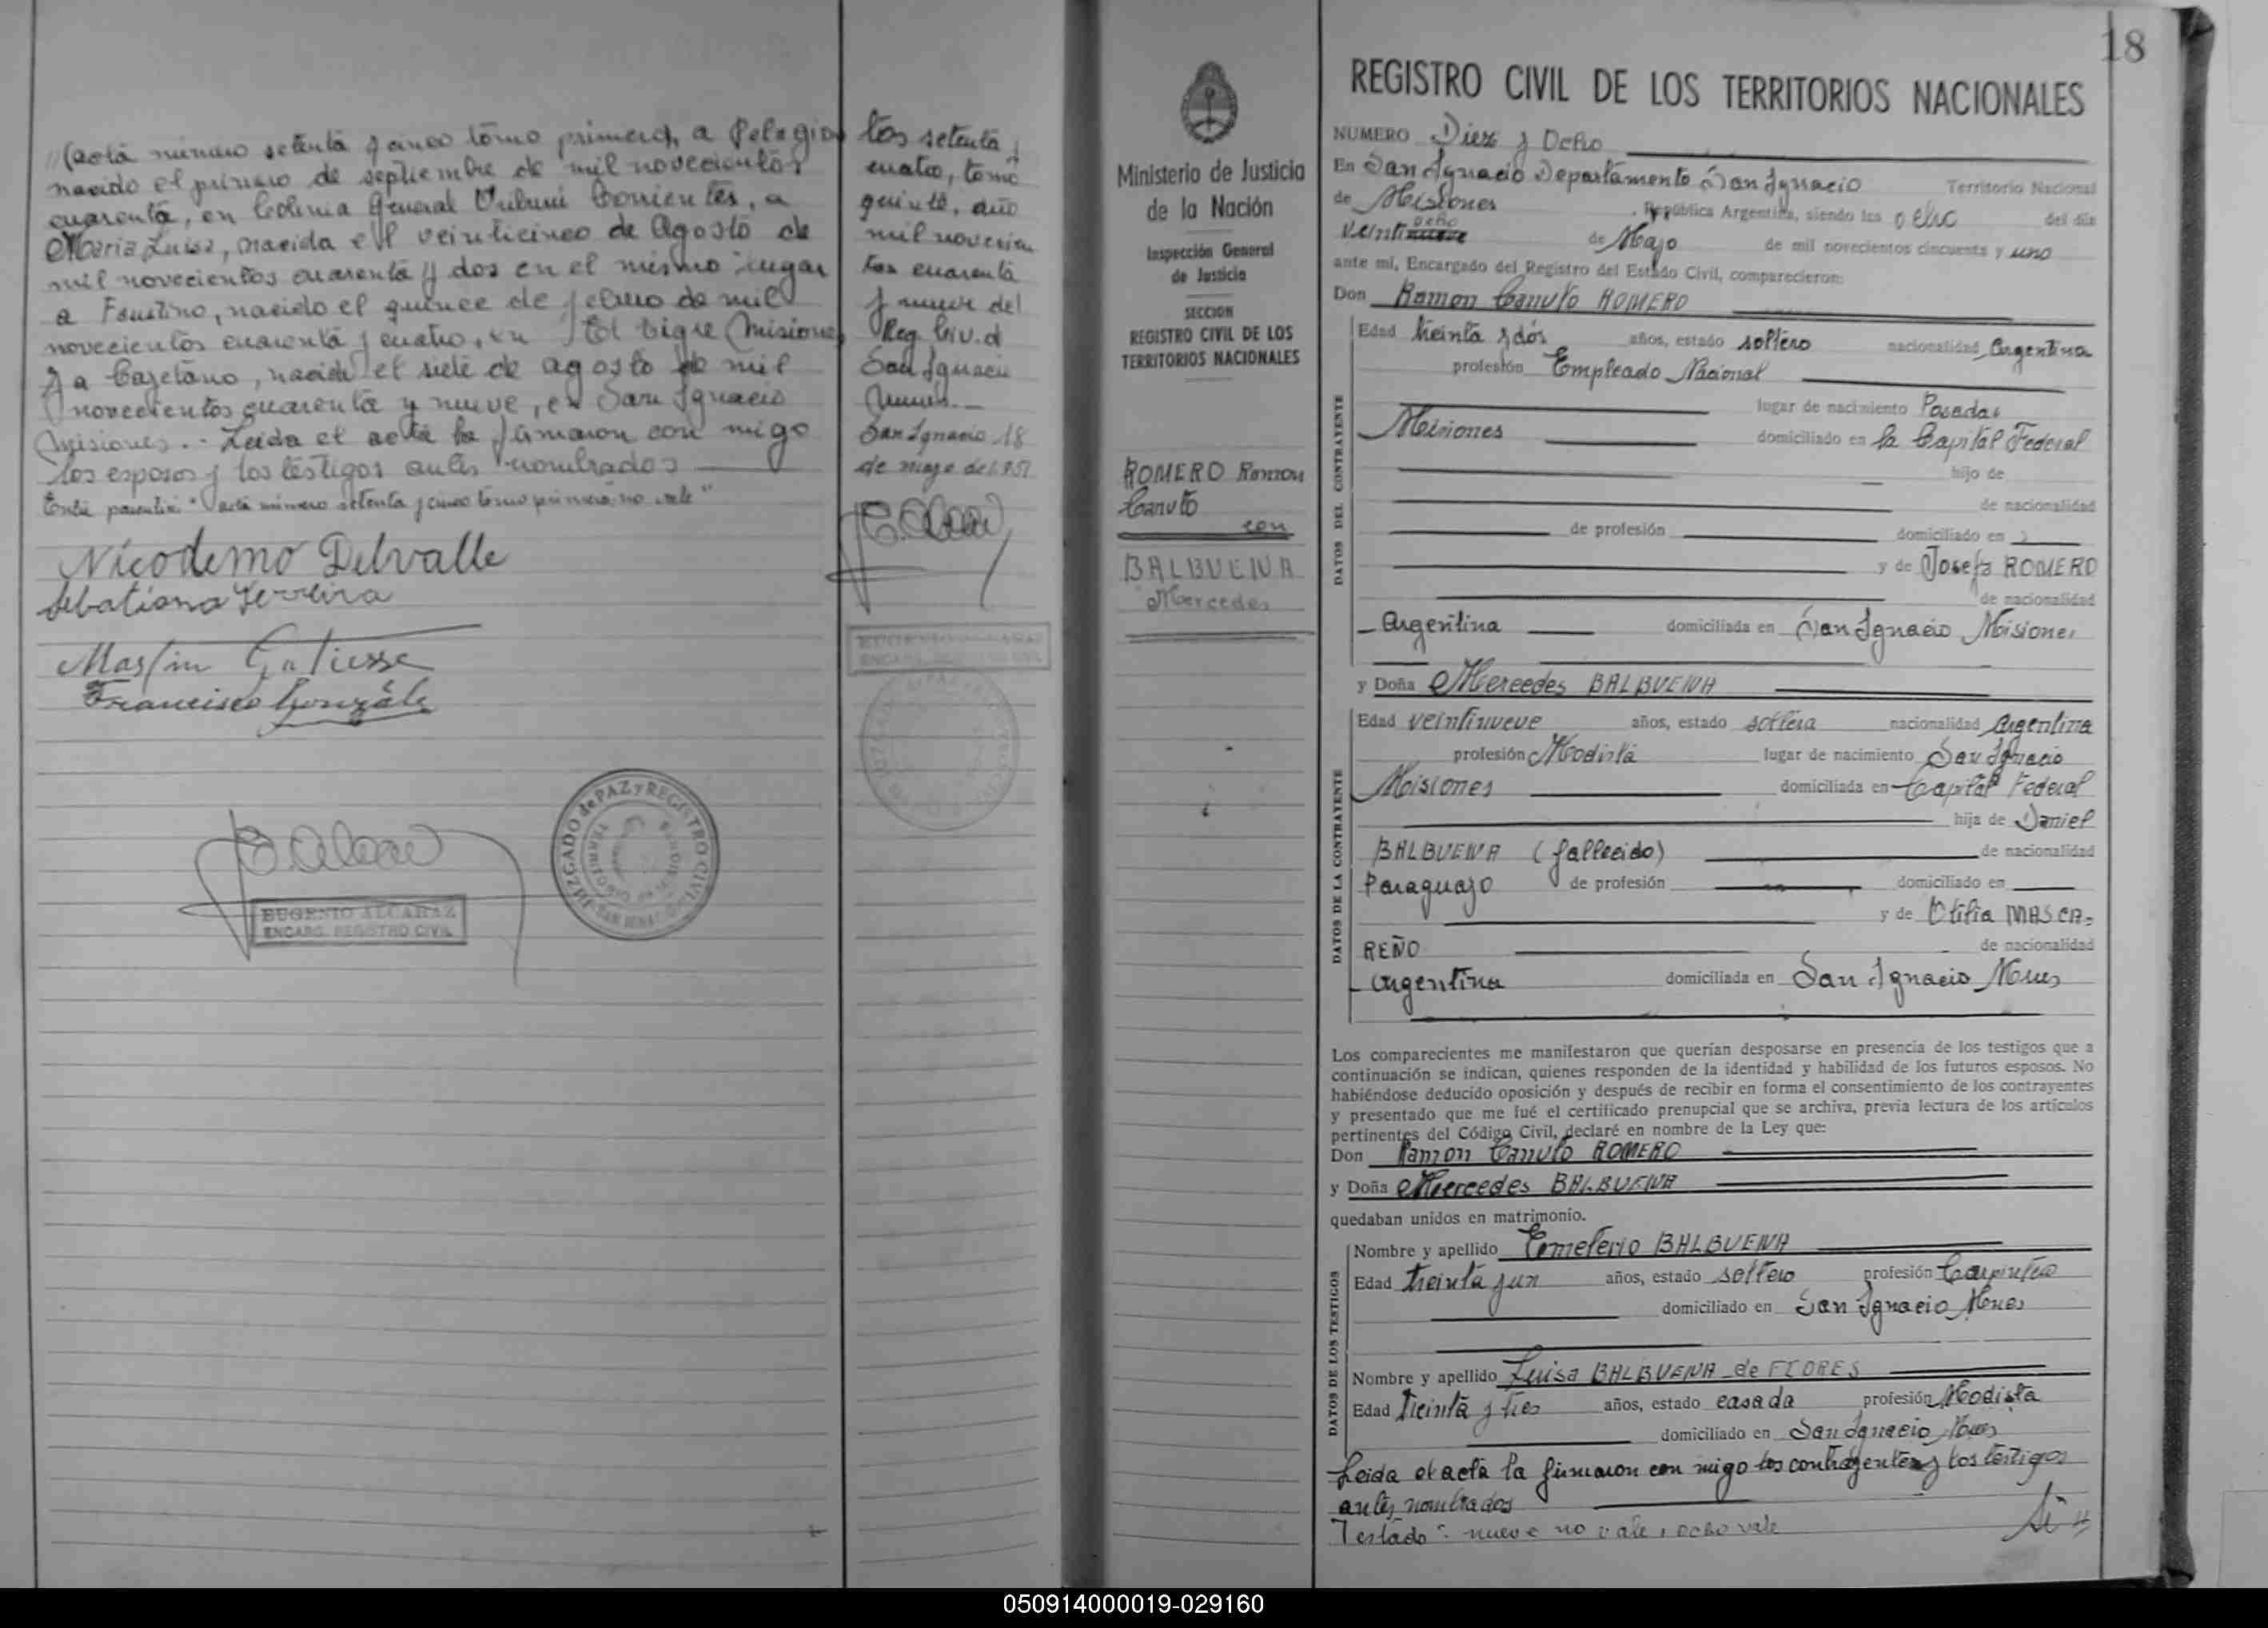 (acta número setenta y cinco tomo primero), a Pelagio
nacido el primero de septiembre de mil novecientos
cuarenta, en Colonia General Uriburu Corrientes, a
Maria Luisa, nacida el veinticinco de Agosto de
mil novecientos cuarenta y dos en el mismo lugar
a Faustino, nacido el quince de febrero de mil
novecientos cuarenta y cuatro, en El Tigre (Misiones
y a Cayetano, nacido el siete de agosto de mil
novecientos cuarenta y nueve, en San Ignacio
Misiones.- Leida el acta la firmaron con migo
los esposos y los testigos antes nombrados
Entre parentisis "acta número setenta y cinco tomo primero, no vale"
Nicodemo Delvalle
Sebatiana Ferreira
Martin Gutierre
Francisco Gonzále
E. Alcaraz
EUGENIO ALCARAZ
ENCARG. REGISTRO CIVIL
JUZGADO de PAZ y REGISTRO CIVIL
SAN IGNACIO
tos setenta y
cuatro, tomo
quinto, año
mil novecien
tos cuarenta
y nueve del
Reg. Civ. d
San Ignacio
Mnes.
San Ignacio 18
de mayo de 1.951
E. Alcaraz
EUGENIO ALCARAZ
ENCARG. REGISTRO CIVIL
Ministerio de Justicia
de la Nación
Inspección General
de Justicia
SECCION
REGISTRO CIVIL DE LOS
TERRITORIOS NACIONALES
ROMERO Ramon
Canuto
con
BALBUENA
Mercedes
18
REGISTRO CIVIL DE LOS TERRITORIOS NACIONALES
NUMERO Diez y Ocho
En San Ignacio Departamento San Ignacio Territorio Nacional
de Misiones, República Argentina, siendo las ocho del día
ocho
veintinueve de Mayo de mil novecientos cincuenta y uno
ante mí, Encargado del Registro del Estado Civil, comparecieron:
Don Ramon Canuto ROMERO
DATOS DEL CONTRAYENTE
Edad treinta y dós años, estado soltero nacionalidad Argentina
profesión Empleado Nacional
lugar de nacimiento Posadas
Misiones domiciliado en la Capital Federal
hijo de
de nacionalidad
de profesión domiciliado en
y de Josefa ROMERO
de nacionalidad
Argentina domiciliada en San Ignacio Misiones
y Doña Mercedes BALBUENA
DATOS DE LA CONTRAYENTE
Edad veintinueve años, estado soltera nacionalidad Argentina
profesión Modista lugar de nacimiento San Ignacio
Misiones domiciliada en Capital Federal
hija de Daniel
BALBUENA (fallecido) de nacionalidad
Paraguayo de profesión domiciliado en
y de Otilia MASCA-
REÑO de nacionalidad
Argentina domiciliada en San Ignacio Mnes
Los comparecientes me manifestaron que querían desposarse en presencia de los testigos que a
continuación se indican, quienes responden de la identidad y habilidad de los futuros esposos. No
habiéndose deducido oposición y después de recibir en forma el consentimiento de los contrayentes
y presentado que me fué el certificado prenupcial que se archiva, previa lectura de los artículos
pertinentes del Código Civil, declaré en nombre de la Ley que:
Don Ramon Canuto ROMERO
y Doña Mercedes BALBUENA
quedaban unidos en matrimonio.
DATOS DE LOS TESTIGOS
Nombre y apellido Emeterio BALBUENA
Edad treinta y un años, estado soltero profesión Carpintero
domiciliado en San Ignacio Mnes
Nombre y apellido Luisa BALBUENA de FLORES
Edad treinta y tres años, estado casada profesión Modista
domiciliado en San Ignacio Mnes
Leida el acta la firmaron con migo los contrayentes y los testigos
antes nombrados
Testado: nueve no vale, ocho vale
050914000019-029160